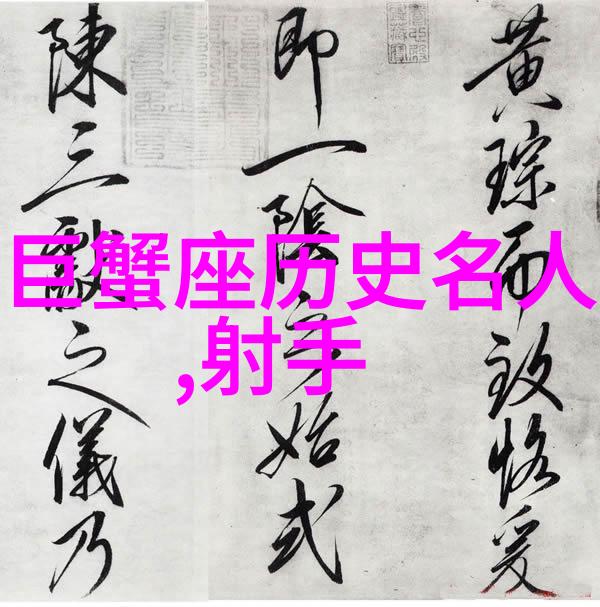 巨蟹座历史名人
,射手
黄琮而致恪爰
即一陰始式
陳三獻之儀乃